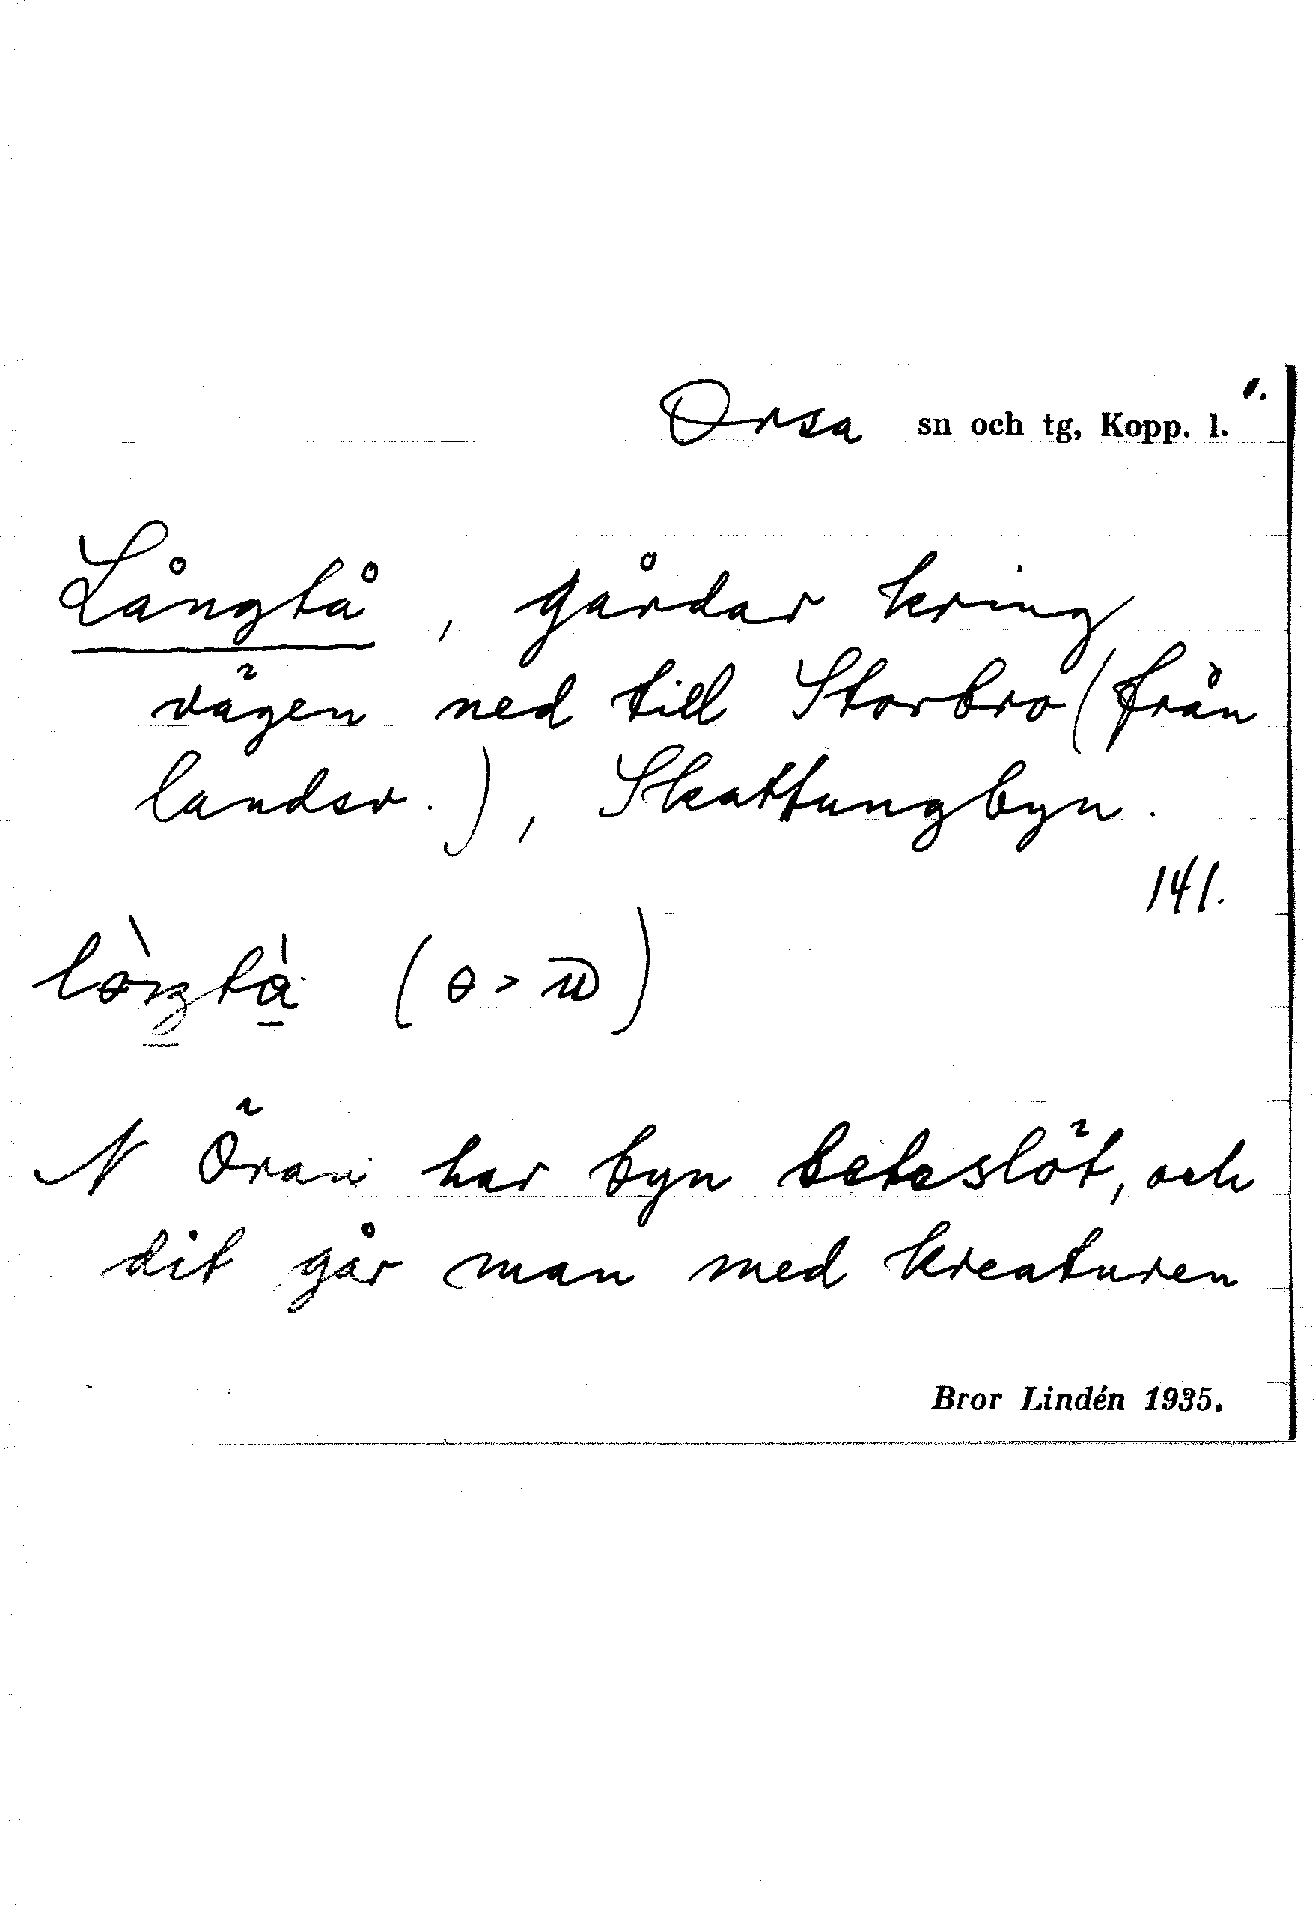 Orsa sn och tg, Kopp. l.
Långtå, gårdar kring
vägen ned till Storbro (från
landsv.), Skattungbyn.
141.
N Öran har byn betesslöt, och
dit går man med kreaturen
Bror Lindén 1935.